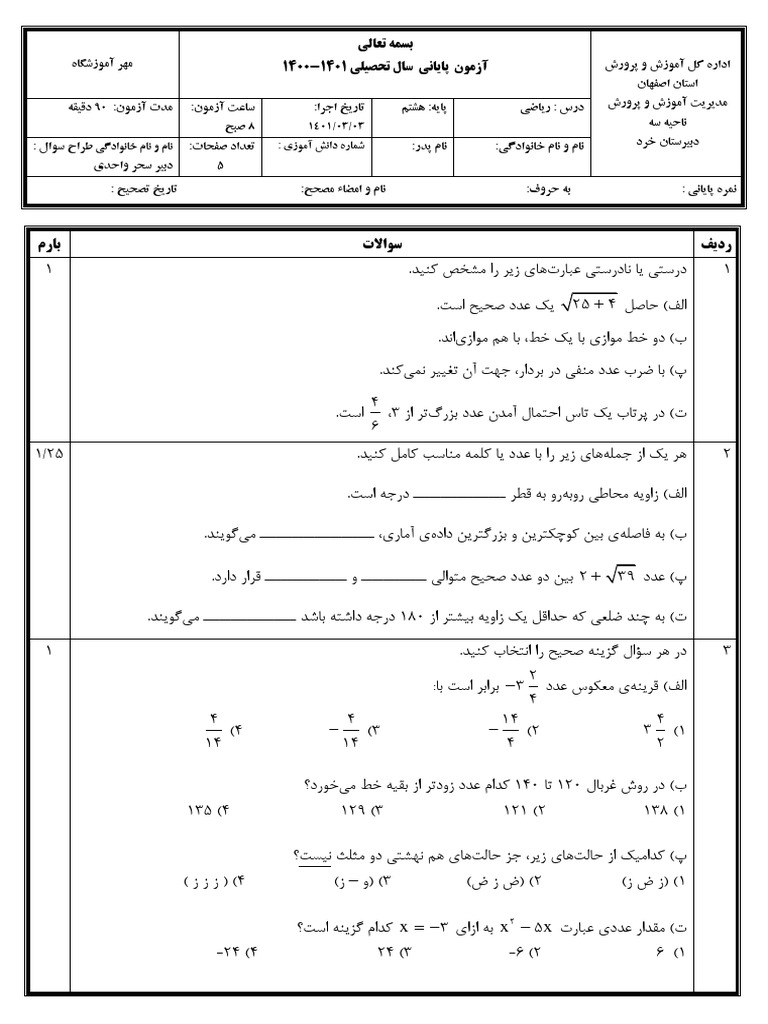 بسمه تعالی
آزمون پایانی سال تحصیلی ۱۴۰۱-۱۴۰۰
اداره کل آموزش و پرورش
استان اصفهان
مدیریت آموزش و پرورش
ناحیه سه
دبیرستان خرد
مهر آموزشگاه
درس : ریاضی
پایه: هشتم
تاریخ اجرا:
۱۴۰۱/۰۳/۰۳
ساعت آزمون:
۸ صبح
مدت آزمون: ۹۰ دقیقه
نام و نام خانوادگی:
نام پدر:
شماره دانش آموزی :
تعداد صفحات:
۵
نام و نام خانوادگی طراح سوال :
دبیر سحر واحدی
نمره پایانی :
به حروف:
نام و امضاء مصحح:
تاریخ تصحیح :
ردیف سوالات بارم
۱ درستی یا نادرستی عبارت‌های زیر را مشخص کنید. ۱
الف) حاصل √(۲۵ + ۴) یک عدد صحیح است.
ب) دو خط موازی با یک خط، با هم موازی‌اند.
پ) با ضرب عدد منفی در بردار، جهت آن تغییر نمی‌کند.
ت) در پرتاب یک تاس احتمال آمدن عدد بزرگ‌تر از ۳، ۴/۶ است.
۲ هر یک از جمله‌های زیر را با عدد یا کلمه مناسب کامل کنید. ۱/۲۵
الف) زاویه محاطی روبه‌رو به قطر ــــــــــــ درجه است.
ب) به فاصله‌ی بین کوچکترین و بزرگترین داده‌ی آماری، ــــــــــــ می‌گویند.
پ) عدد ۲ + √۳۹ بین دو عدد صحیح متوالی ــــــــــــ و ــــــــــــ قرار دارد.
ت) به چند ضلعی که حداقل یک زاویه بیشتر از ۱۸۰ درجه داشته باشد ــــــــــــ می‌گویند.
۳ در هر سؤال گزینه صحیح را انتخاب کنید. ۱
الف) قرینه‌ی معکوس عدد −۳ ۲/۴ برابر است با:
۱) ۳ ۴/۲ ۲) −۱۴/۴ ۳) −۴/۱۴ ۴) ۴/۱۴
ب) در روش غربال ۱۲۰ تا ۱۴۰ کدام عدد زودتر از بقیه خط می‌خورد؟
۱) ۱۳۸ ۲) ۱۲۱ ۳) ۱۲۹ ۴) ۱۳۵
پ) کدامیک از حالت‌های زیر، جز حالت‌های هم نهشتی دو مثلث نیست؟
۱) (ز ض ز) ۲) (ض ز ض) ۳) (و – ز) ۴) ( ز ز ز )
ت) مقدار عددی عبارت x² − ۵x به ازای x = −۳ کدام گزینه است؟
۱) ۶ ۲) ۶- ۳) ۲۴ ۴) ۲۴-